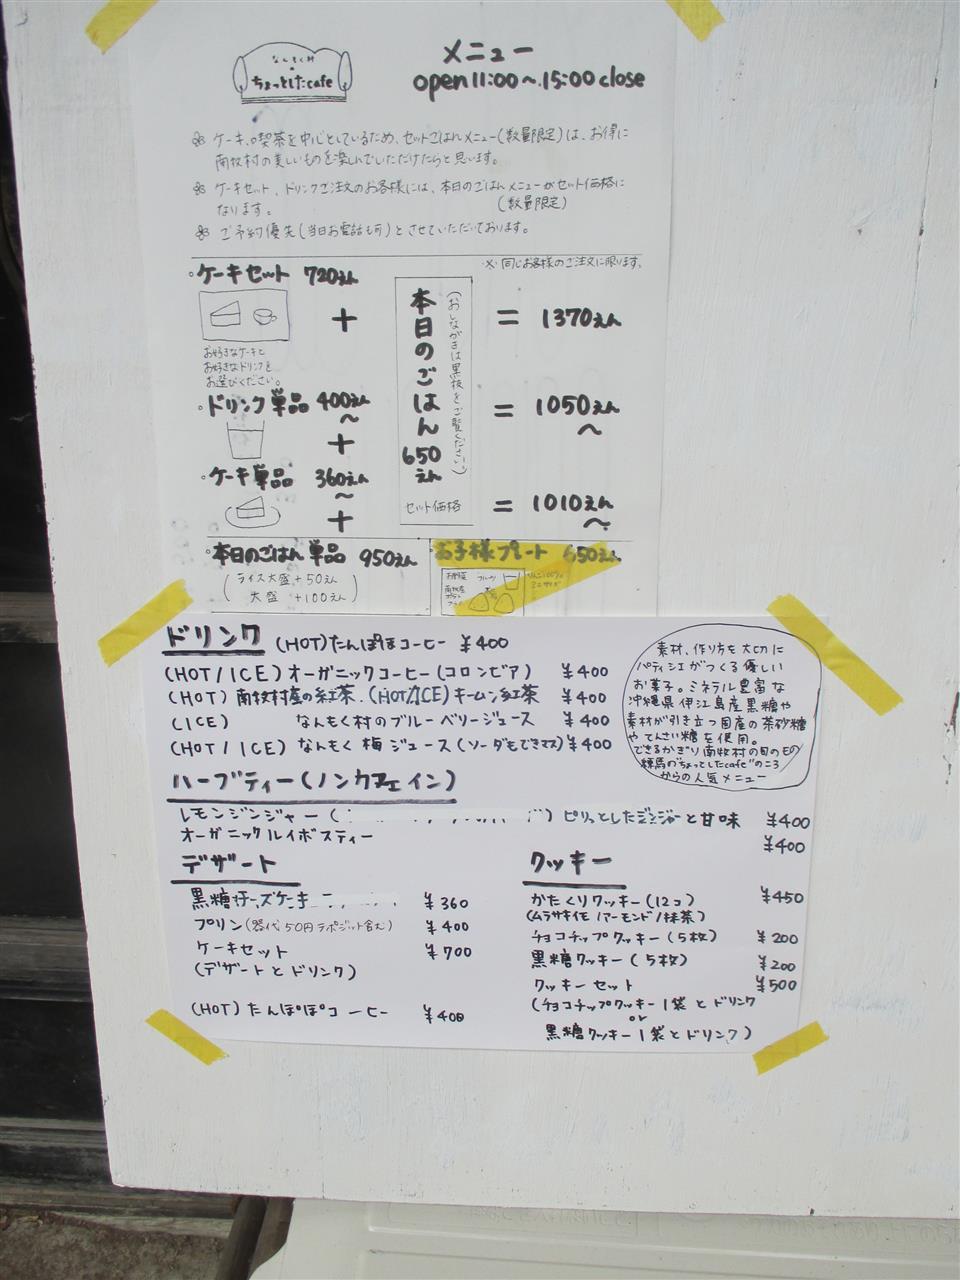 なんもく村
の
ちょっとしたcafe
メニュー
open 11:00～15:00 close
ケーキ、喫茶を中心としているため、セットごはんメニュー(数量限定)は、お得に
南牧村の美しいものを楽しんでいただけたらと思います。
ケーキセット、ドリンクご注文のお客様には、本日のごはんメニューがセット価格に
なります。 (数量限定)
ご予約優先(当日お電話も可)とさせていただいております。
※同じお客様のご注文に限ります。
・ケーキセット 720えん
お好きなケーキと
お好きなドリンクを
お選びください。
+
本日のごはん 650えん
(おしながきは黒板をご覧ください。)
セット価格
= 1370えん
・ドリンク単品 400えん～
+
= 1050えん～
・ケーキ単品 360えん～
+
= 1010えん～
・本日のごはん単品 950えん
(ライス大盛+50えん
大盛 +100えん)
お子様プレート 650えん
フルーツ
南牧産
ドリンク (HOT)たんぽぽコーヒー ¥400
(HOT/ICE)オーガニックコーヒー(コロンビア) ¥400
(HOT) 南牧村産の紅茶.(HOT/ICE)キームン紅茶 ¥400
(ICE) なんもく村のブルーベリージュース ¥400
(HOT/ICE) なんもく梅ジュース(ソーダもできマス) ¥400
素材、作り方を大切に
パティシエがつくる優しい
お菓子。ミネラル豊富な
沖縄県伊江島産黒糖や
素材が引き立つ国産の茶砂糖
やてんさい糖を使用。
できるかぎり南牧村の旬のもの
練馬の"ちょっとしたcafe"のころ
からの人気メニュー
ハーブティー(ノンカフェイン)
レモンジンジャー( ) ピリっとしたジンジャーと甘味 ¥400
オーガニックルイボスティー ¥400
デザート
黒糖チーズケーキ ¥360
プリン(器代50円デポジット含む) ¥400
ケーキセット ¥700
(デザートとドリンク)
(HOT)たんぽぽコーヒー ¥400
クッキー
かたくりクッキー(12コ) ¥450
(ムラサキイモ/アーモンド/抹茶)
チョコチップクッキー(5枚) ¥200
黒糖クッキー(5枚) ¥200
クッキーセット ¥500
(チョコチップクッキー1袋とドリンク
or
黒糖クッキー1袋とドリンク)